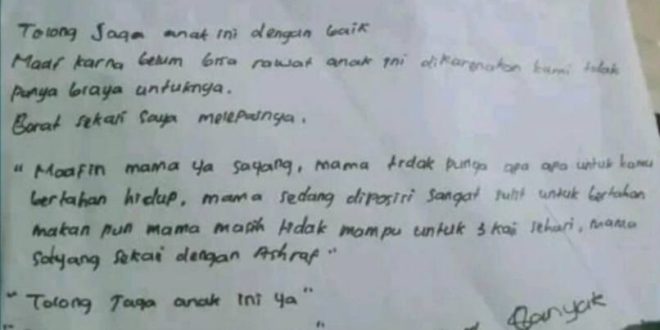 Tolong Jaga anak ini dengan baik
Maaf karna belum bisa rawat anak ini dikarenakan kami tidak
punya biaya untuknya.
Berat sekali saya melepasnya.
"Maafin mama ya sayang, mama tidak punya apa apa untuk kamu
bertahan hidup, mama sedang diposisi sangat sulit untuk bertahan
makan pun mama masih tidak mampu untuk 3 kali sehari, mama
sayang sekali dengan Ashraf"
"Tolong Jaga anak ini ya"
Banyak